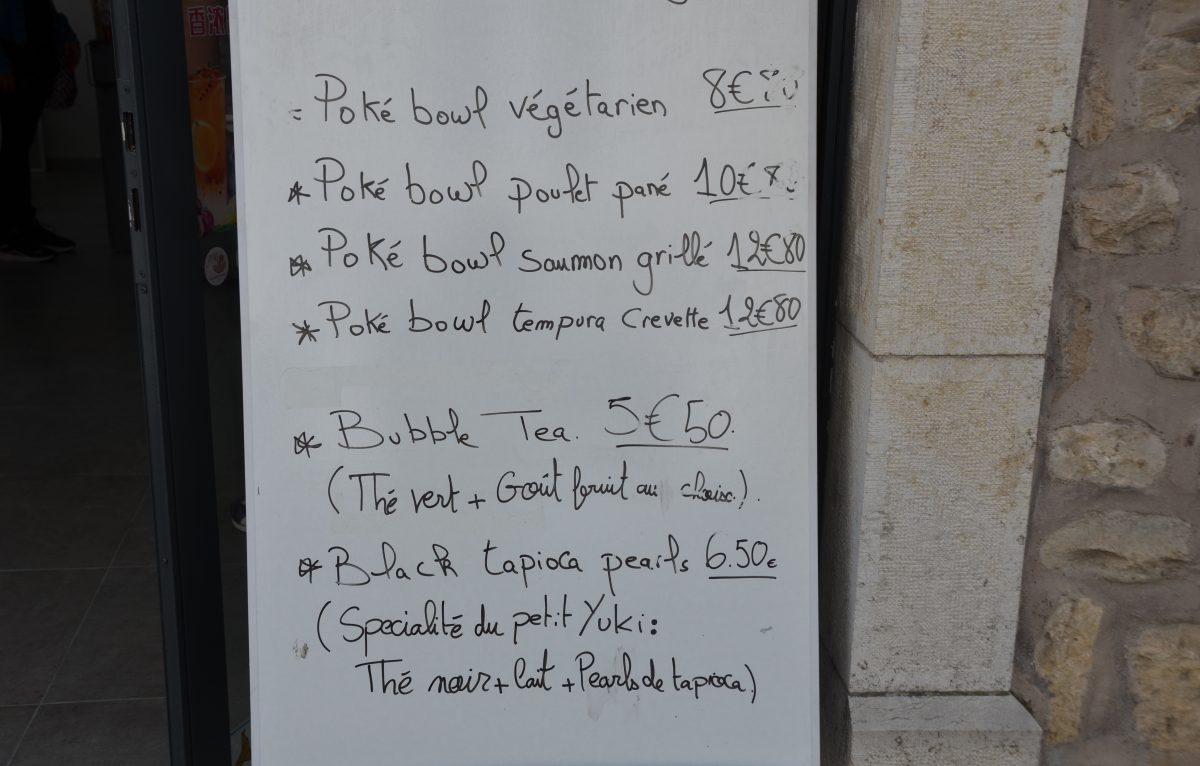 香浓
- Poké bowl végétarien 8€
* Poké bowl poulet pané 10€
* Poké bowl saumon grillé 12€80
* Poké bowl tempura crevette 12€80
* Bubble Tea. 5€50.
(Thé vert + Goût fruit au choix.).
* Black tapioca pearls 6.50€
(Specialité du petit Yuki:
Thé noir + lait + Pearls de tapioca)